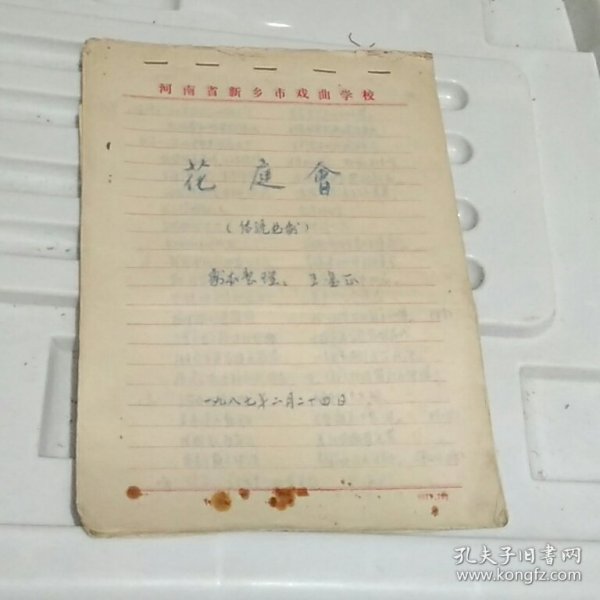 河南省新乡市戏曲学校
花庭會
(传统曲剧)
剧本整理:王
一九八七年二月二十四日
孔夫子旧书网
www.kongfz.com